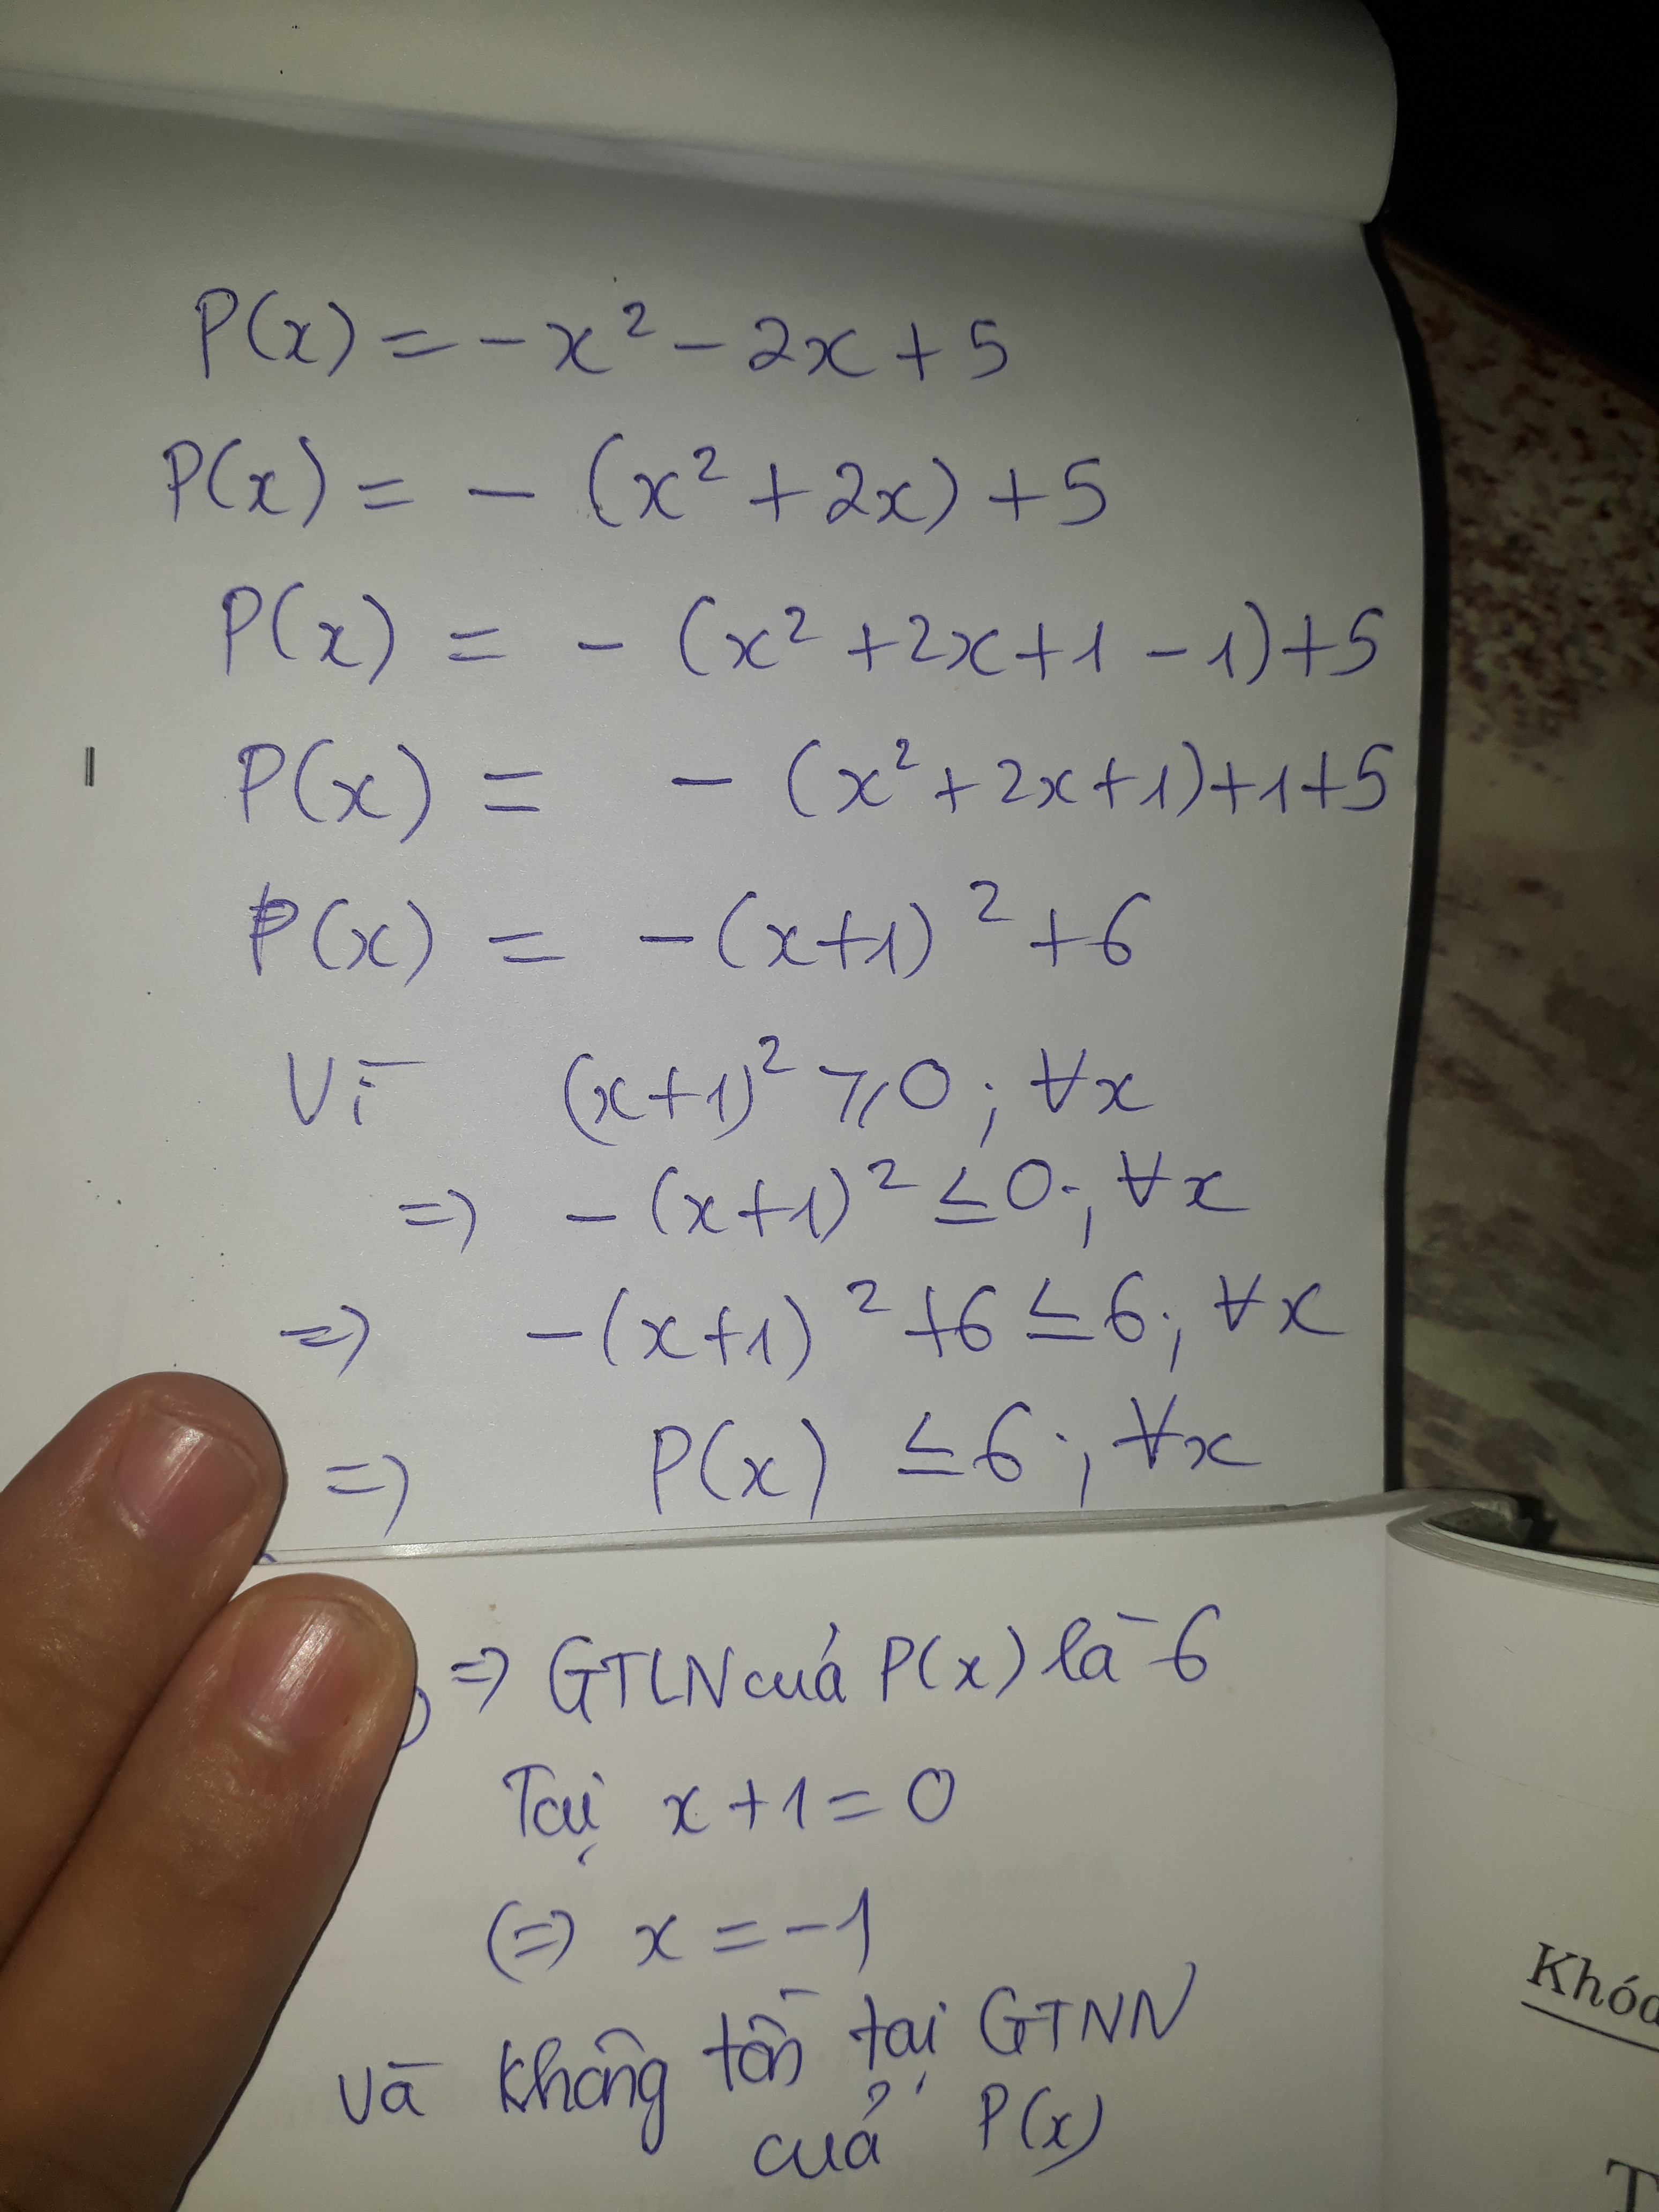 P(x) = -x² - 2x + 5
P(x) = - (x² + 2x) + 5
P(x) = - (x² + 2x + 1 - 1) + 5
P(x) = - (x² + 2x + 1) + 1 + 5
P(x) = -(x+1)² + 6
Vì (x+1)² ⩾ 0 ; ∀x
=> -(x+1)² ≤ 0 ; ∀x
=> -(x+1)² + 6 ≤ 6 ; ∀x
=> P(x) ≤ 6 ; ∀x
=> GTLN của P(x) là 6
Tại x + 1 = 0
(=) x = -1
và không tồn tại GTNN
của P(x)